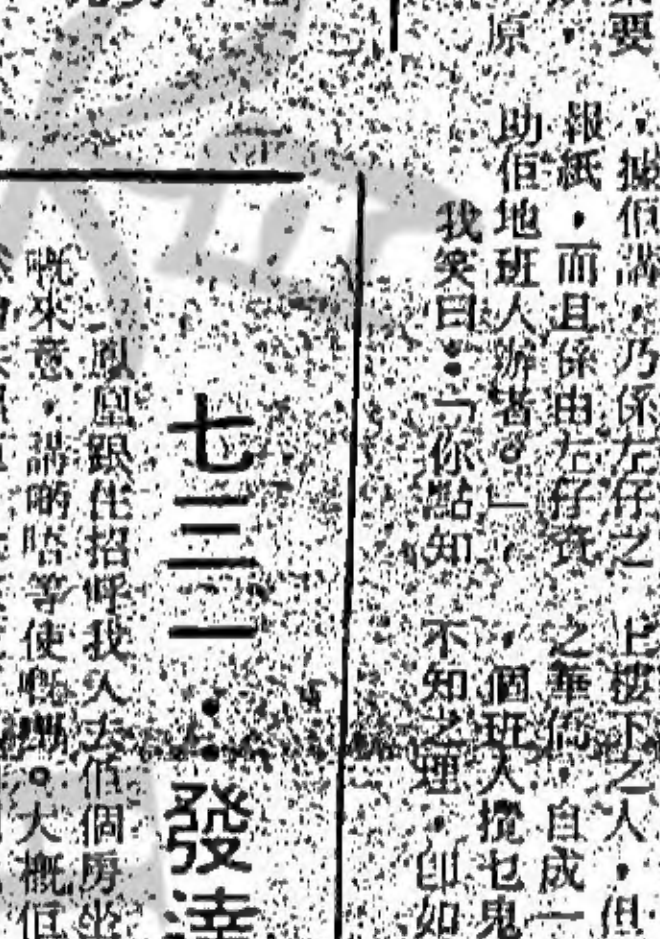 要
原
，據佢講，乃係左仔之
報紙，而且係由左仔資
助佢地班人辦者。」
我笑曰：「你點知
上樓下之人，但
之華僑，自成一
，個班人攪乜鬼
不知之理，即如
七三一：發達
鳳凰跟住招呼我人去佢個房坐
嘅來意，講啲唔等使嘅嘢。大概佢